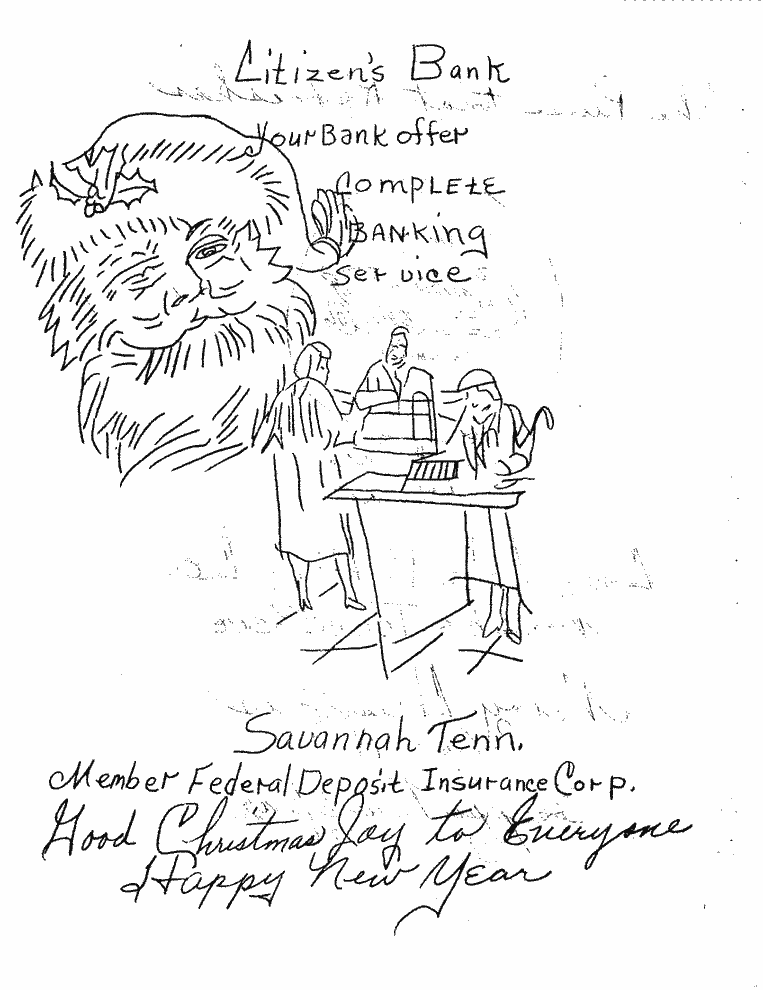 Citizen's Bank
Your Bank offer
Complete
Banking
Service
Savannah Tenn.
Member Federal Deposit Insurance Corp.
Good Christmas Joy to Everyone
Happy New Year